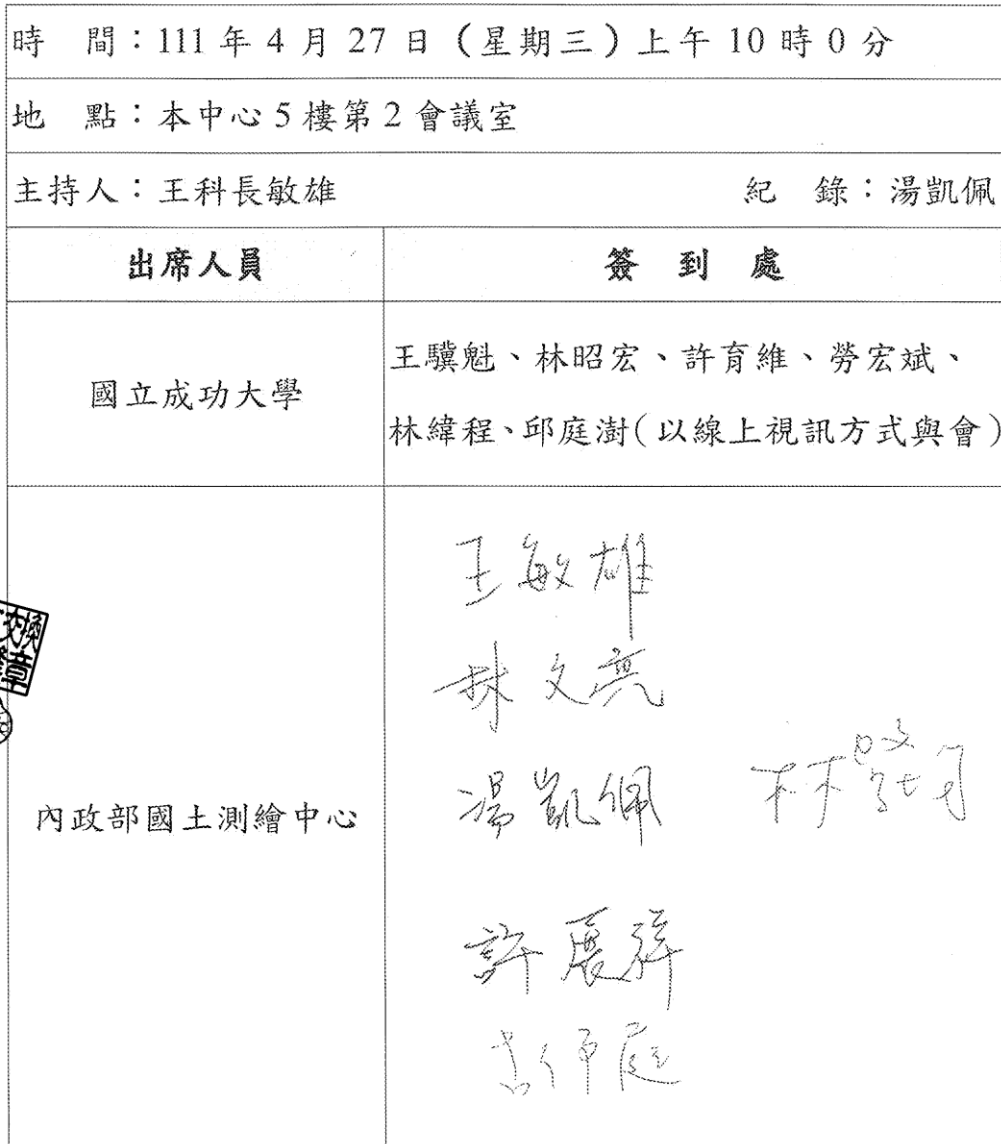 時　間：111 年 4 月 27 日（星期三）上午 10 時 0 分
地　點：本中心 5 樓第 2 會議室
主持人：王科長敏雄　紀　錄：湯凱佩
出席人員　簽　到　處
國立成功大學
王驥魁、林昭宏、許育維、勞宏斌、
林緯程、邱庭澍(以線上視訊方式與會)
內政部國土測繪中心
王敏雄
林文亮
湯凱佩
許展祥
交換
章